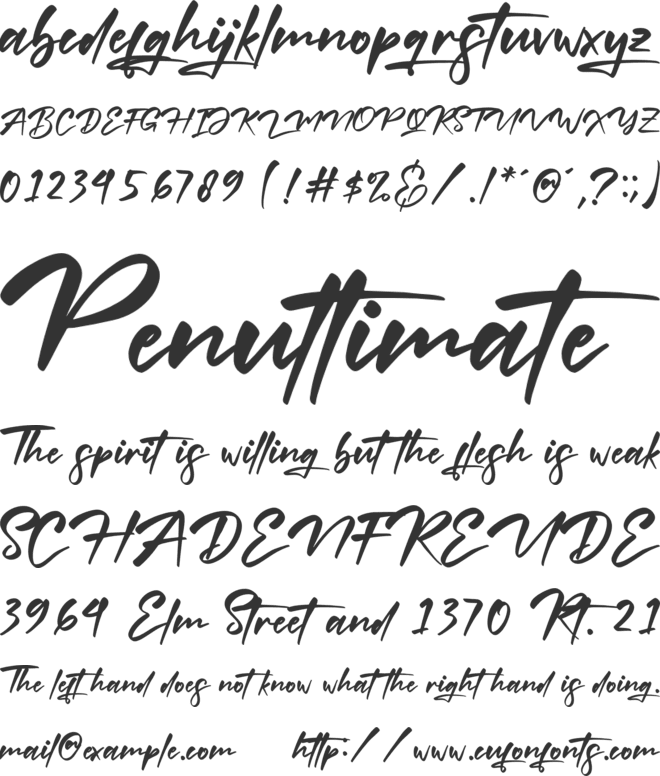 abcdefghijklmnopqrstuvwxyz
ABCDEFGHIJKLMNOPQRSTUVWXYZ
0123456789 (!#$%&/.|*´@´,?:;)
Penultimate
The spirit is willing but the flesh is weak
SCHADENFREUDE
3964 Elm Street and 1370 Rt. 21
The left hand does not know what the right hand is doing.
mail@example.com http://www.cufonfonts.com